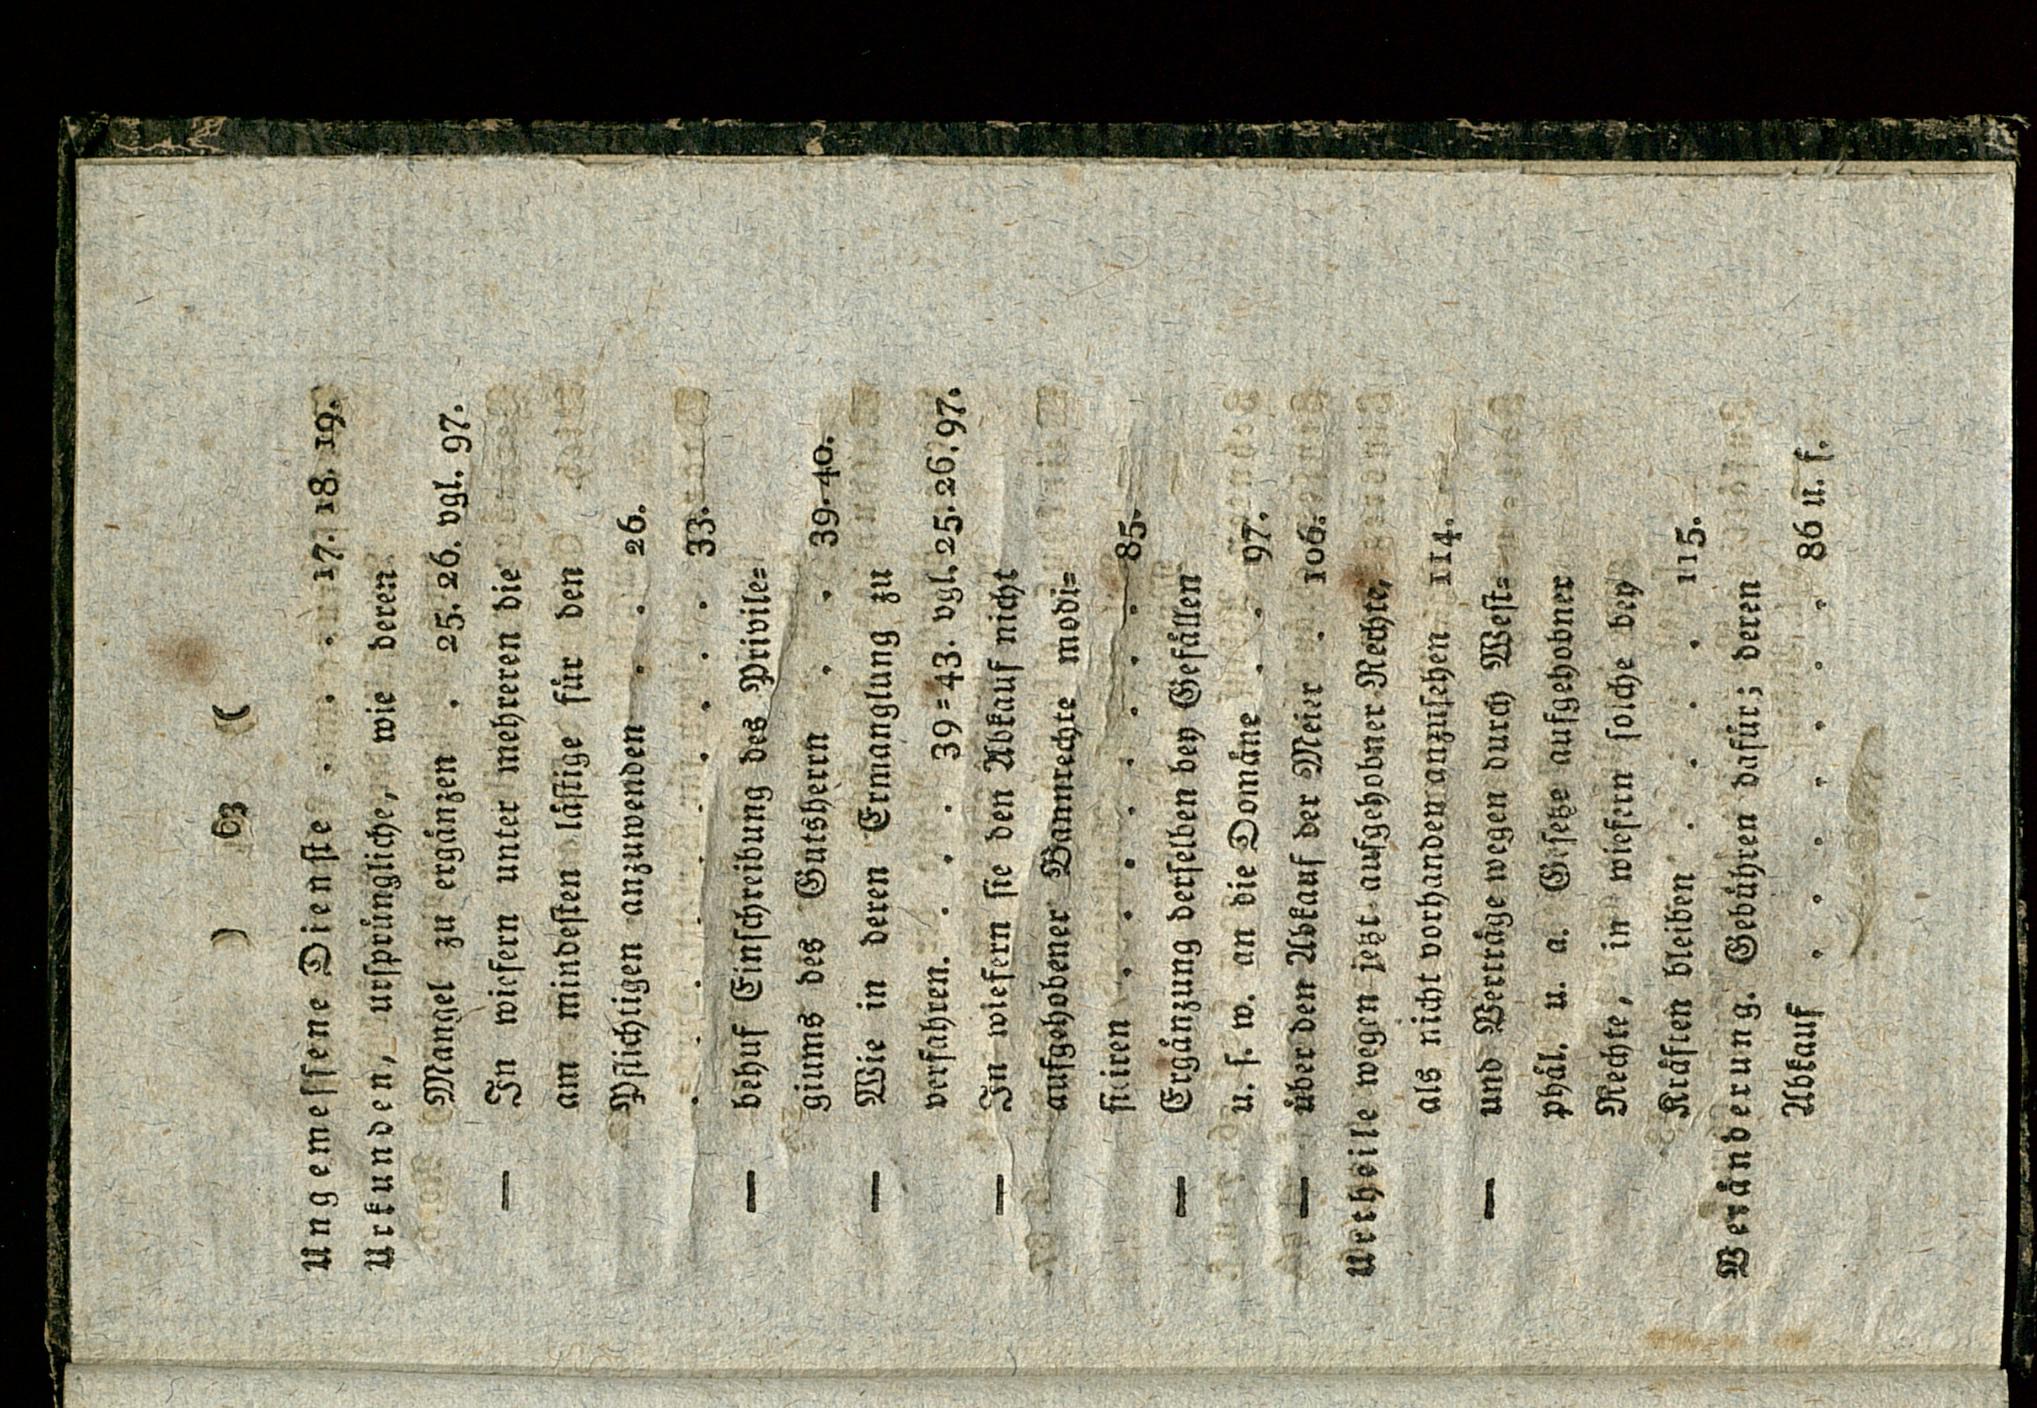 ) 63 (
Ungemessene Dienste . . . 17. 18. 19.
Urkunden, ursprüngliche, wie deren
Mangel zu ergänzen . 25. 26. vgl. 97.
— In wiefern unter mehreren die
am mindesten lästige für den
Pflichtigen anzuwenden . . 26.
. . . . . . . . 33.
— behuf Einschreibung des Privile=
giums des Gutsherrn . . 39. 40.
— Wie in deren Ermanglung zu
verfahren. . . . 39=43. vgl. 25. 26. 97.
— In wiefern sie den Abkauf nicht
aufgehobener Bannrechte modi=
ficiren . . . . . . . . 85.
— Ergänzung derselben bey Gefällen
u. s. w. an die Domäne . . 97.
— über den Abkauf der Meier . 106.
Urtheile wegen jetzt aufgehobner Rechte,
als nicht vorhanden anzusehen 114.
— und Verträge wegen durch West=
phäl. u. a. Gesetze aufgehobner
Rechte, in wiefern solche bey
Kräften bleiben . . . . 115.
Veränderung. Gebühren dafür; deren
Abkauf . . . . . . . 86 u. f.